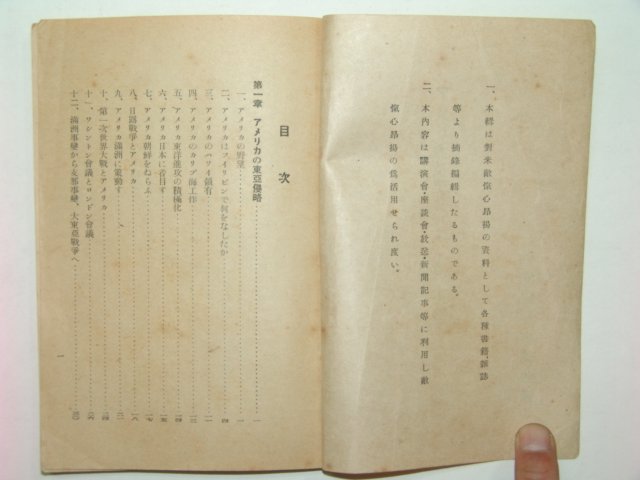 一、本輯は對米敵愾心昂揚の資料として各種書籍、雜誌
等より摘錄編輯したるものである。
二、本內容は講演會・座談會・放送・新聞記事等に利用し敵
愾心昂揚の爲活用せられ度い。
目次
第一章 アメリカの東亞侵略
一、アメリカの野望
二、アメリカはフイリピンで何をなしたか
三、アメリカのハワイ領有
四、アメリカのカリブ海工作
五、アメリカ東洋進攻の積極化
六、アメリカ日本に着目す
七、アメリカ朝鮮をねらふ
八、日露戰爭とアメリカ
九、アメリカ滿洲に策動す
十、第一次世界大戰とアメリカ
十一、ワシントン會議とロンドン會議
十二、滿洲事變から支那事變、大東亞戰爭へ